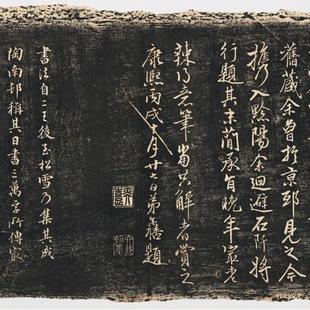 舊藏余曾於京邸見之今
攜入黔陽余迴避石阡將
行題其末簡爾庚有晚年最老
辣得意筆當共解者賞之
康熙丙戌 月廿七日弟 題
書法自二王後至松雪乃集其成
陶南邨稱其日書三萬字所傳